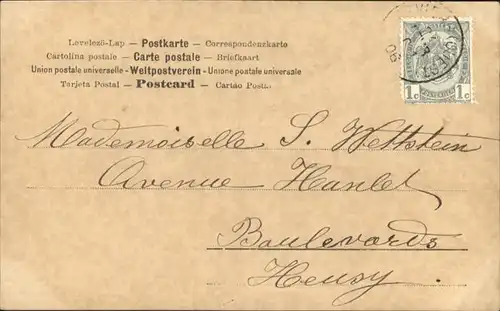 Levelező-Lap — Postkarte — Correspondenzkarte
Cartolina postale — Carte postale — Briefkaart
Union postale universelle — Weltpostverein — Unione postale universale
Tarjeta Postal — Postcard — Cartão Postal
1c 1c
Mademoiselle S. Wettstein
Avenue Hanlet
Boulevards
Heusy.